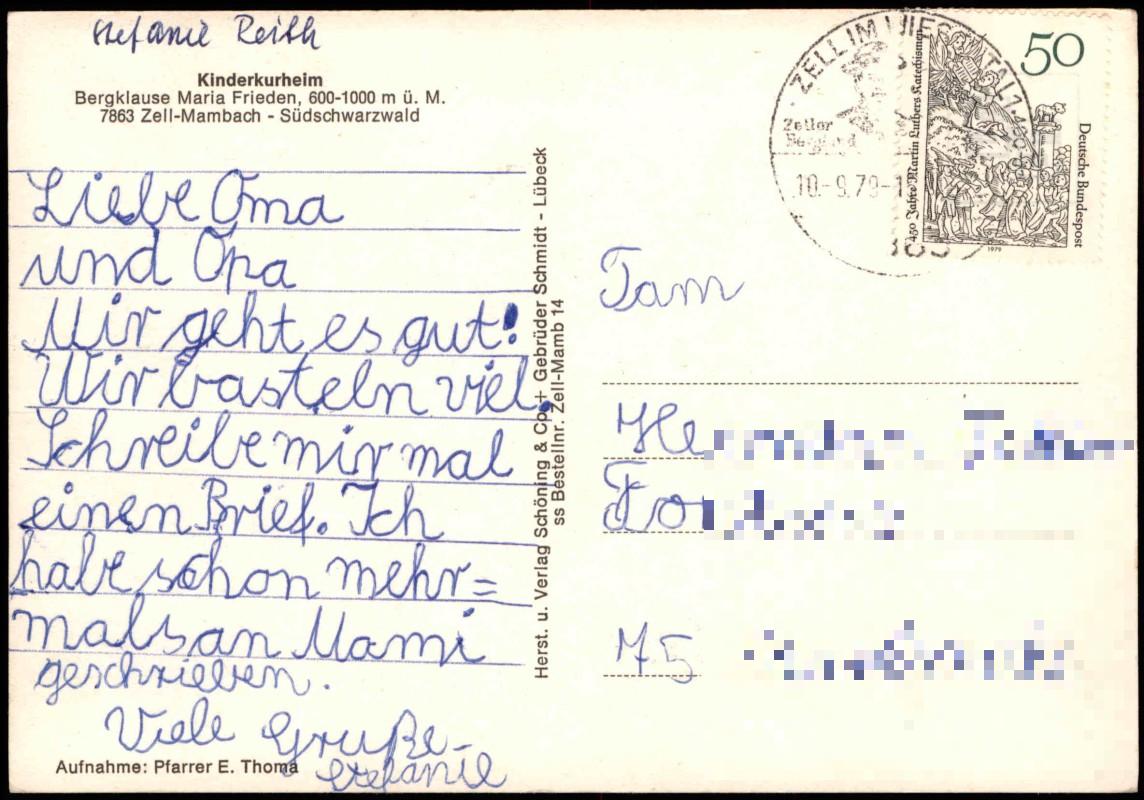 Stefanie Reith
Kinderkurheim
Bergklause Maria Frieden, 600-1000 m ü. M.
7863 Zell-Mambach - Südschwarzwald
Liebe Oma
und Opa
Mir geht es gut!
Wir basteln viel.
Schreibe mir mal
einen Brief. Ich
habe schon mehr=
mals an Mami
geschrieben.
Viele Gruße
Stefanie
Aufnahme: Pfarrer E. Thoma
Herst. u. Verlag Schöning & Co + Gebrüder Schmidt - Lübeck
ss Bestellnr. Zell-Mamb 14
ZELL IM WIESENTAL
Zeller
Bergland
10.-9.79-1
50
450 Jahre Martin Luthers Katechismen
Deutsche Bundespost
1979
Fam
75